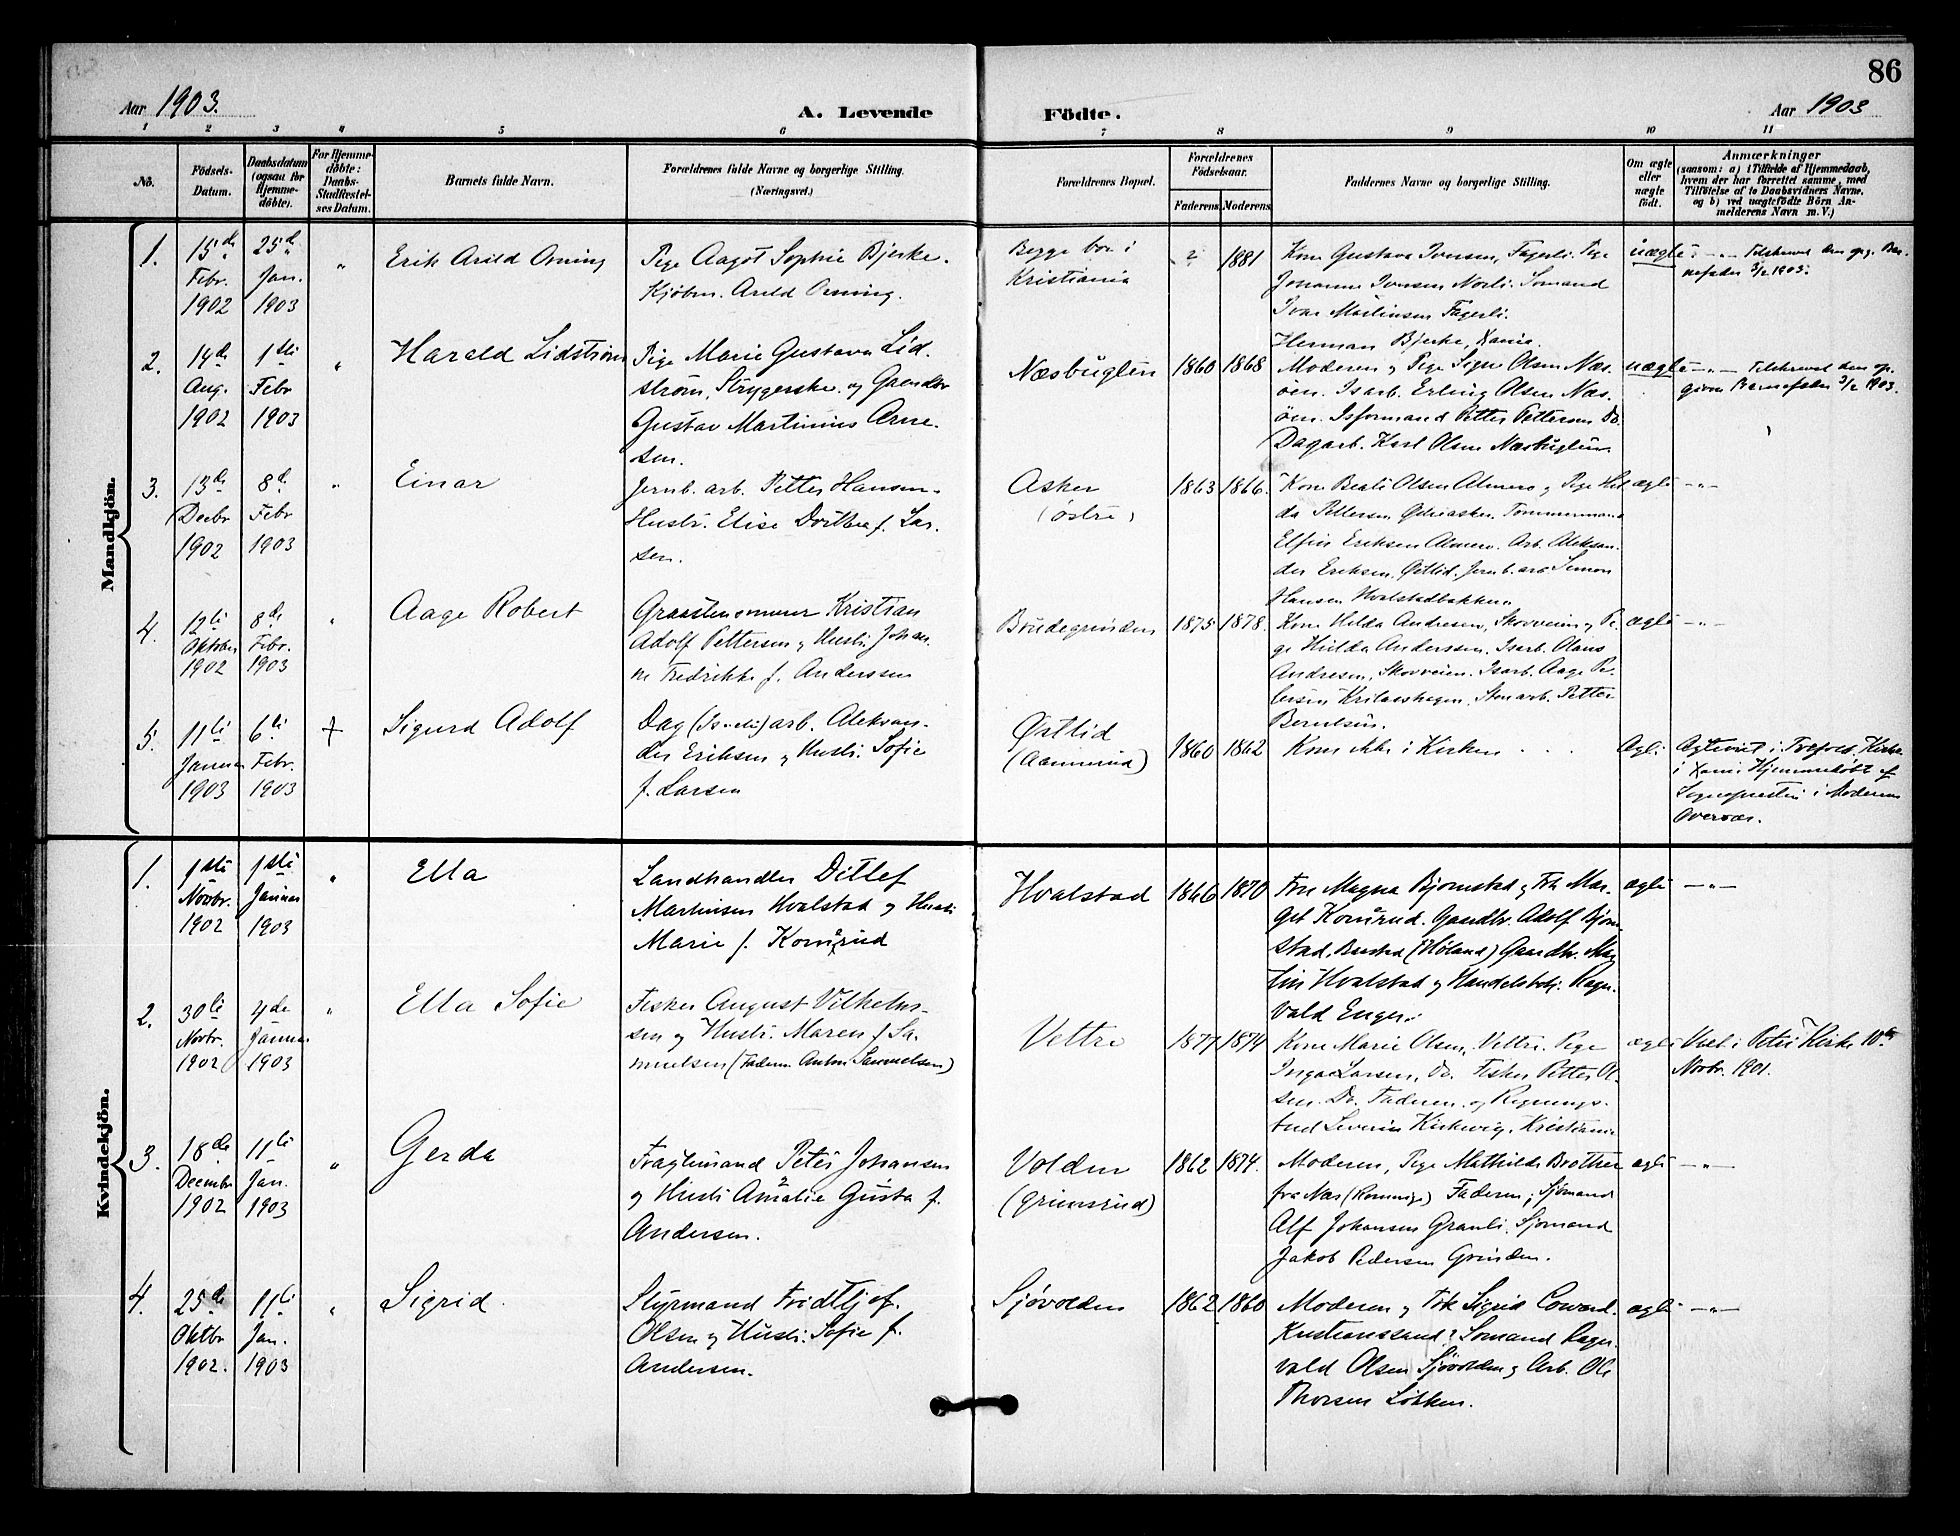 86
Aar 1903.
A. Levende
Födte.
Aar 1903
1 2 3 4 5 6 7 8 9 10 11
No.
Födsels-
Datum.
Daabsdatum
(ogsaa for
Hjemme-
döbte).
For Hjemme-
döbte:
Daabs-
Stadfæstel-
ses Datum.
Barnets fulde Navn.
Forældrenes fulde Navne og borgerlige Stilling.
(Næringsvei.)
Forældrenes Bopæl.
Forældrenes
Födselsaar.
Faderens
Moderens
Faddernes Navne og borgerlige Stilling.
Om ægte
eller
uægte
födt.
Anmærkninger
(saasom: a) i Tilfælde af Hjemmedaab,
hvem der har forrettet samme, med
Tilföielse af to Daabsvidners Navne,
og b) ved uægtefödte Börn An-
melderens Navn m. V.)
Mandkjön.
1.
15de
Febr.
1902
25de
Jan.
1903
"
Erik Arild Orning
Pige Aagot Sophie Bjerke.
Kjøbm. Arild Orning.
Begge bor i
Kristiania
?
1881
Kone Gustava Iversen, Fagerli. Pige
Johanne Iversen Norli. Sømand
Ivar Martinsen Fagerli.
Herman Bjerke, Xania.
uægte
Tilskrevet den opg. Bar-
nefader 3/2 1903.
2.
14de
Aug.
1902
1ste
Febr
1903
"
Harald Lidstrøm
Pige Marie Gustava Lid-
strøm, Strygerske. og Gaardbr
Gustav Martinius Arne-
sen.
Næsbugten
1860
1868
Moderen og Pige Signe Olsen Næs-
øen. Isarb. Erling Olsen Næs-
øen. Isformand Petter Pettersen Do.
Dagarb. Karl Olsen Næsbugten
uægte
Tilskrevet den op-
givne Barnefader 3/2 1903.
3.
13de
Decbr
1902
8de
Febr
1903
"
Einar
Jernb. arb. Petter Hansen
Hustr. Elise Dorthea f. Lar-
sen.
Asker
(østre)
1863
1866.
Kone Beate Olsen Almero og Pige Hil-
da Pettersen Østreasker. Tømmermand
Eriksen Almero. Arb. Aleksan-
der Eriksen, Østlid. Jernb. arb Simon
Hansen Hvalstadbakken
ægte
4.
12te
Oktober
1902
8de
Febr.
1903
"
Aage Robert
Graastensmurer Kristian
Adolf Pettersen og Hustr. Johan-
ne Fredrikke f. Anderssen
Brudegrinden
1875
1878.
Kone Hilda Andresen, Skovveien og Pi-
ge Hilda Anderssen. Isarb. Olaus
Andresen, Skovveien. Isarb. Aage Pe-
tersen. Stenarb. Petter
Berntsen.
ægte
5.
11te
Januar
1903
6te
Febr.
1903
+
Sigurd Adolf
Dag arb. Aleksan-
der Eriksen og Hustr. Sofie
f. Larsen
Østlid
(Aamerud)
1860
1862
Kom ikke i Kirken
ægte
Ægteviet i Trefold. Kirke
i Xania. Hjemmedøbt af
Sognepresten i Moderens
Overvær.
Kvindekjön.
1.
1ste
Novbr.
1902
1ste
Januar
1903
"
Ella
Landhandler Ditlef
Martinsen Hvalstad og Hustr.
Marie f. Komsrud
Hvalstad
1866
1870
Fru Magna Bjørnstad og Frk Mar-
git Komsrud. Gaardbr. Adolf Bjørn-
stad, Bustad (Høland) Gaardbr. Mar-
tin Hvalstad og Handelsbetj. Ragn-
vald Enger.
ægte
2.
30te
Novbr.
1902
4de
Januar
1903
"
Ella Sofie
Fisker August Vilhelm-
sen og Hustr. Maren f. Sa-
muelsen (Faderen Anton Samuelsen)
Vettre
1877
1874
Kone Marie Olsen, Vettre. Pige
Inga Larsen, Do. Fisker Petter Ol-
sen. Do. Faderen og Regnings-
bud Severin Kirkevig, Kristiania
ægte
Viet i Petri Kirke 10de
Novbr. 1901.
3.
18de
Decembr
1902
11te
Jan.
1903
"
Gerda
Fragtemand Peter Johansen
og Hustr. Amalie Gusta f.
Andersen.
Volden
(Grimsrud)
1862
1874.
Moderen, Pige Mathilde Bråthen
fra Næs (Romerige) Faderen, Sjømand
Alf Johansen Granli. Sjømand
Jakob Pedersen Grinden.
ægte
4.
25de
Oktbr
1902.
11te
Jan.
1903
"
Sigrid.
Styrmand Fridtjof
Olsen og Hustr. Sofie f.
Andersen.
Sjøvolden
1862
1860
Moderen og Frk Sigrid Coward.
Kristianssand? Sømand Ragn-
vald Olsen Sjøvolden og Arb. Ole
Thorsen Løkken.
ægte